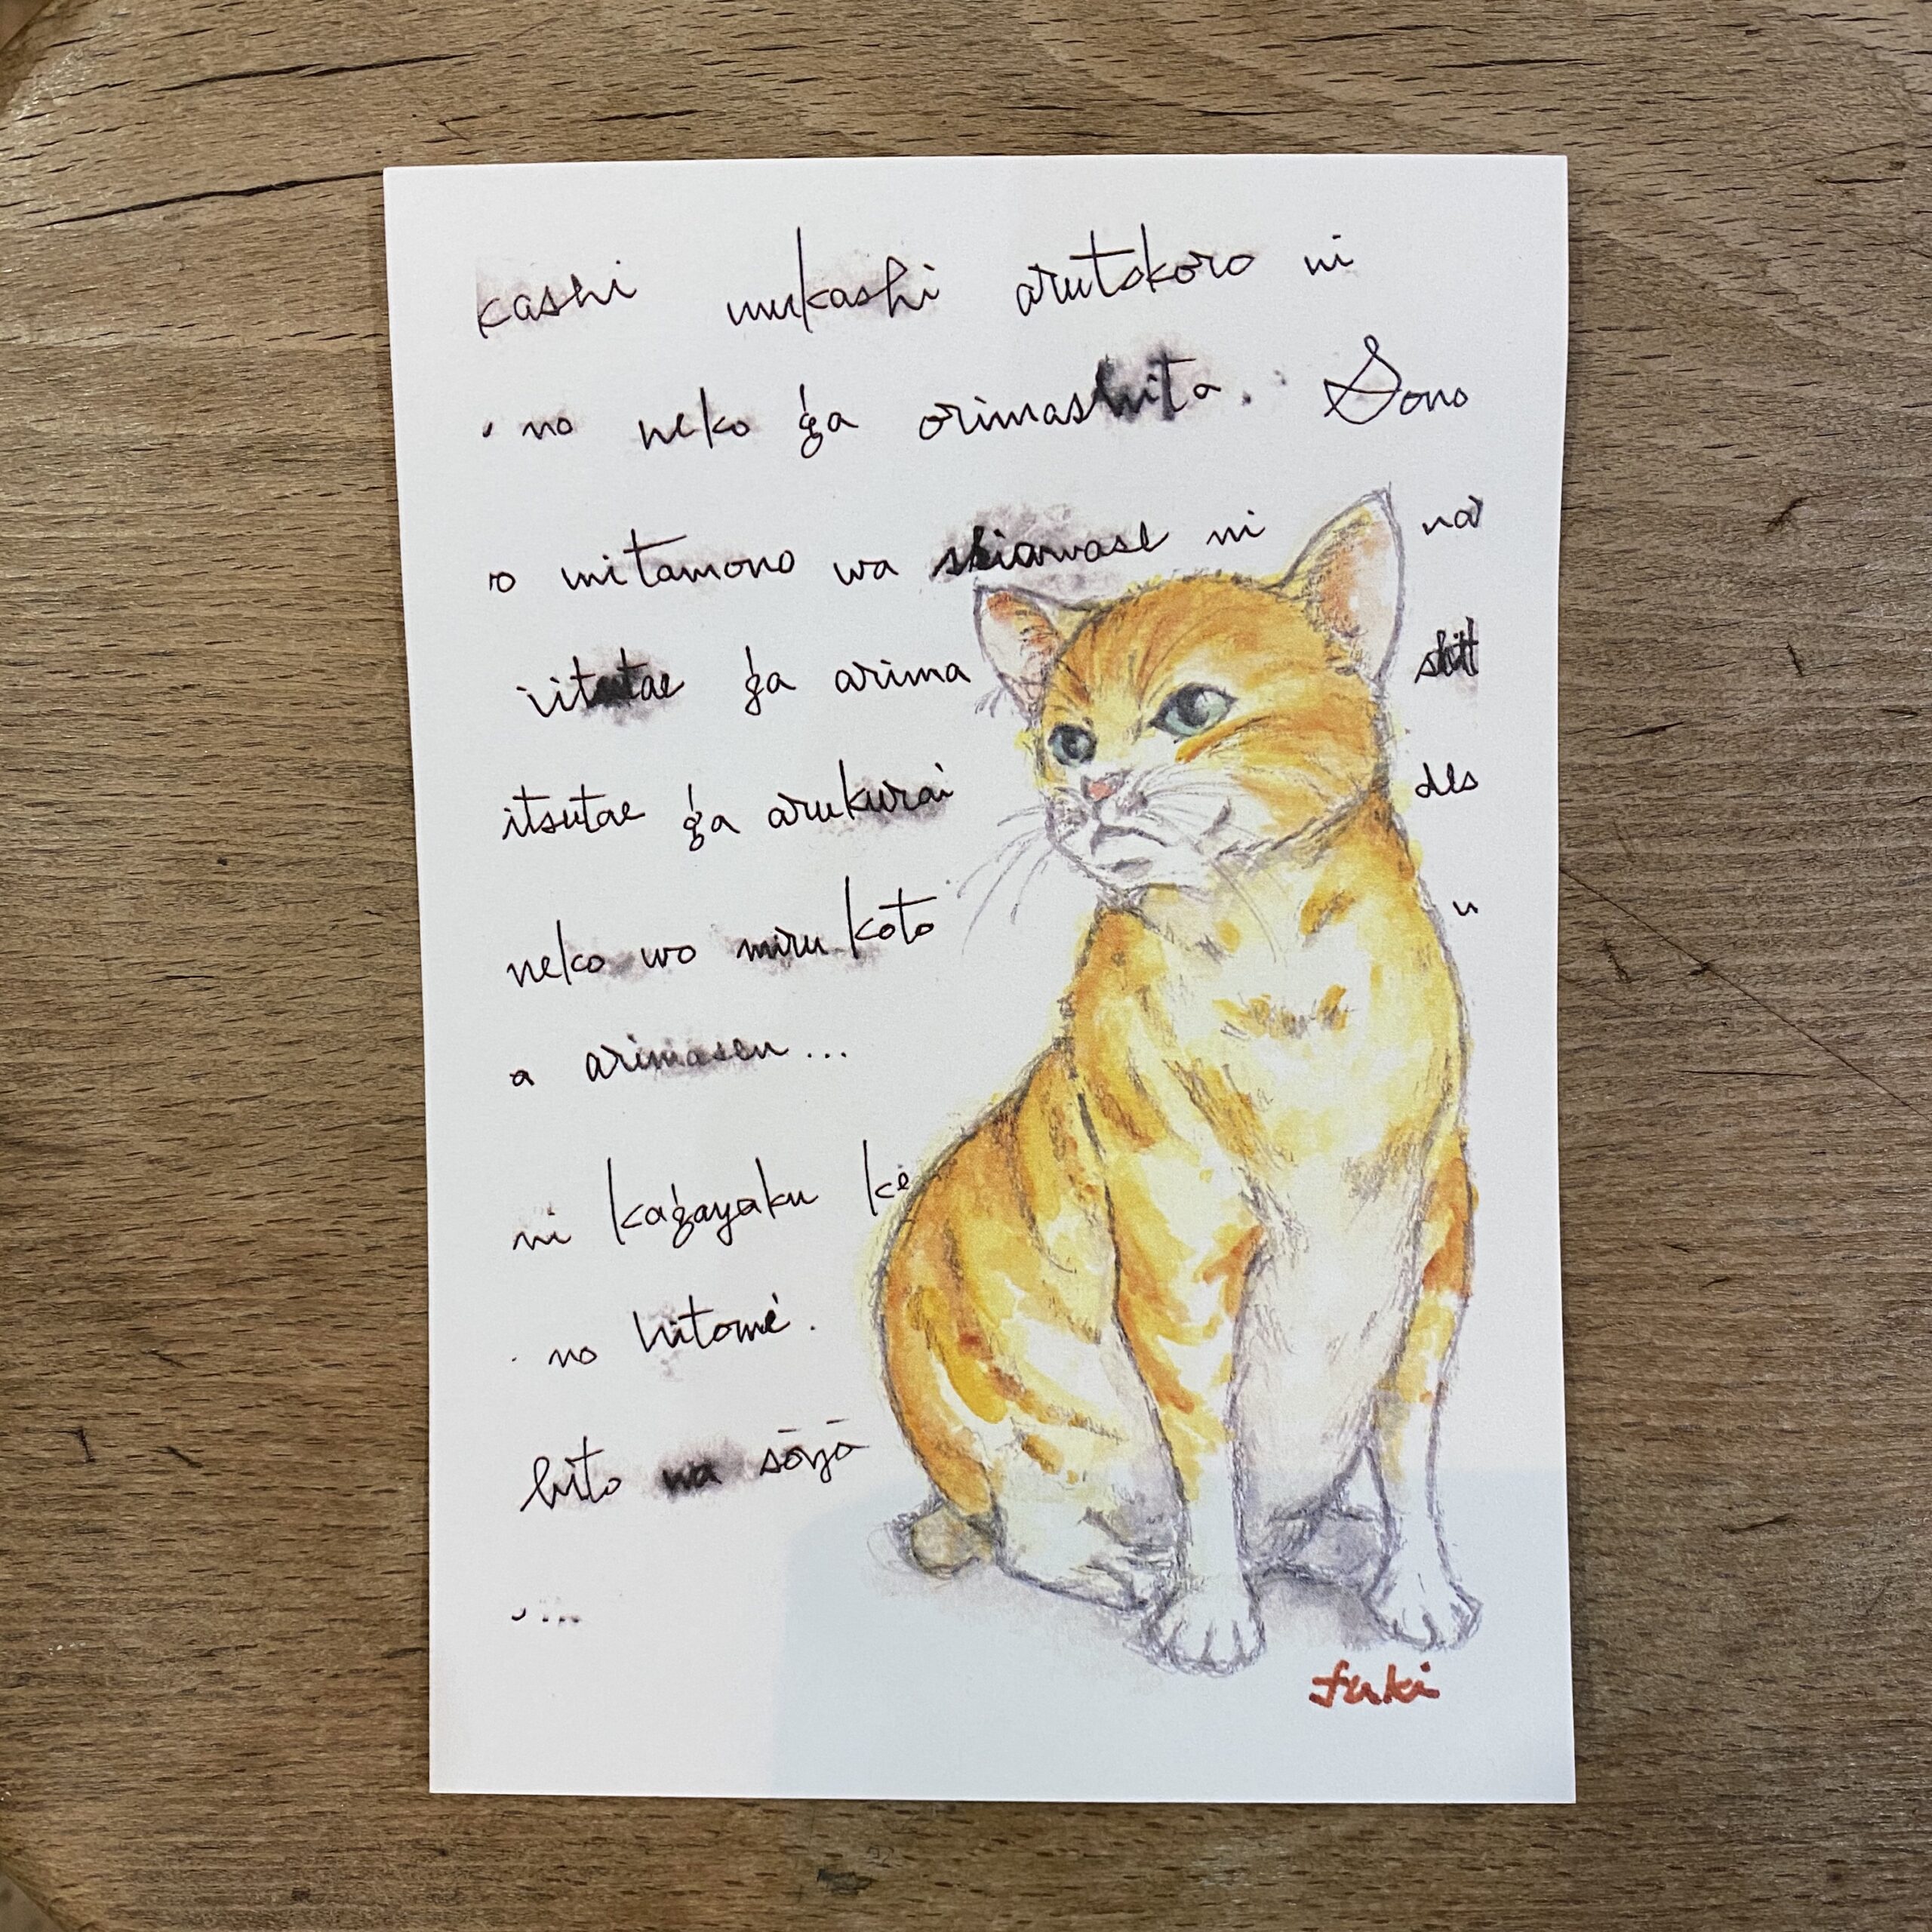 kashi mukashi arutokoro ni
no neko ga orimashita. Sono
o mitamono wa shiawase ni na
iitsutae ga arima shit
iitsutae ga arukurai des
neko wo miru koto
a arimasen...
ni kagayaku ke
no hitomi.
hito wa sōyō
...
fuki